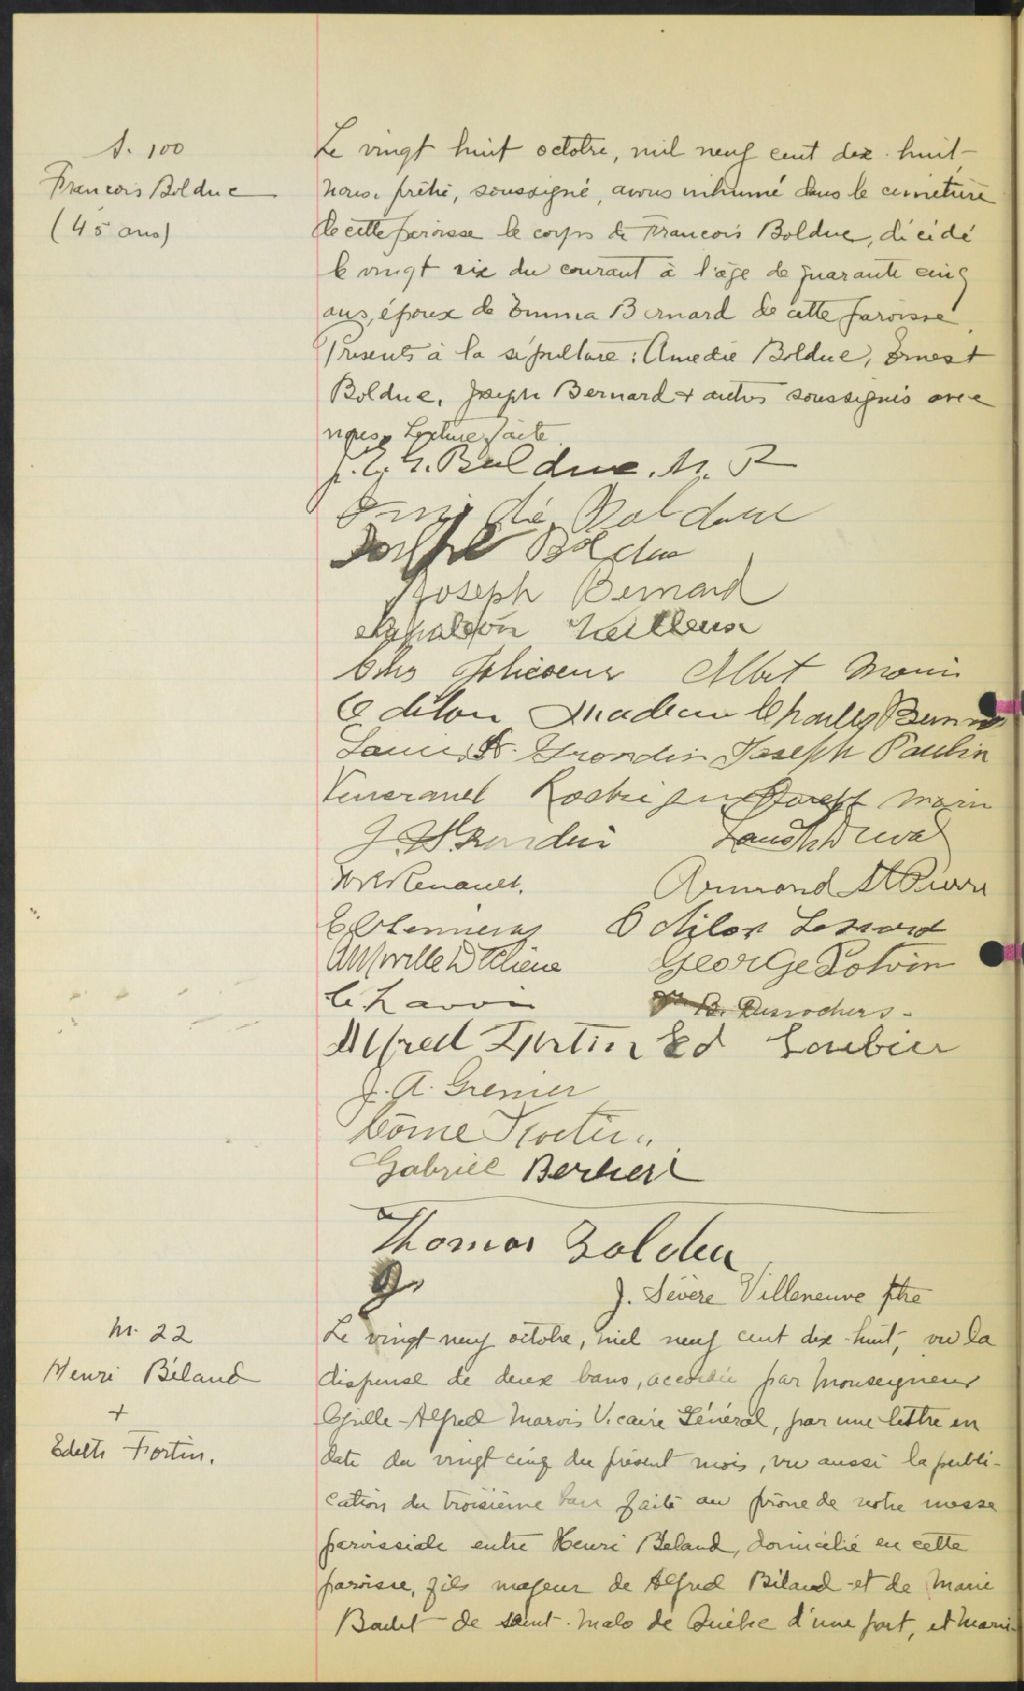 S. 100
François Bolduc
(45 ans)
Le vingt huit octobre, mil neuf cent dix-huit
nous, prêtre, soussigné, avons inhumé dans le cimetière
de cette paroisse le corps de François Bolduc, décédé
le vingt six du courant à l'âge de quarante cinq
ans, époux de Emma Bernard de cette paroisse.
Présents à la sépulture : Amédée Bolduc, Ernest
Bolduc, Joseph Bernard + autres soussignés avec
nous. Lecture faite.
J. E. Bolduc.
Bolduc
Bolduc
Joseph Bernard
Napoléon Veilleux
Jolicoeur Albert Morin
Odilon Nadeau Charles
Louis Grondin Joseph Poulin
Venerand Joseph Morin
J. Grondin
Renault. Armand St Pierre
Odilon Lessard
George Potvin
B. Desrochers.
Alfred Fortin Ed Loubier
J. A. Grenier
Côme Fortin
Gabriel
Thomas Bolduc
J. Sévère Villeneuve ptre
M. 22
Henri Béland
+
Edith Fortin.
Le vingt neuf octobre, mil neuf cent dix-huit, vu la
dispense de deux bans, accordée par Monseigneur
Cyrille-Alfred Marois Vicaire Général, par une lettre en
date du vingt cinq du présent mois, vu aussi la publi-
cation du troisième ban faite au prône de notre messe
paroissiale entre Henri Béland, domicilié en cette
paroisse, fils majeur de Alfred Béland et de Marie
Boulet de Saint-Malo de Québec d'une part, et Marie-